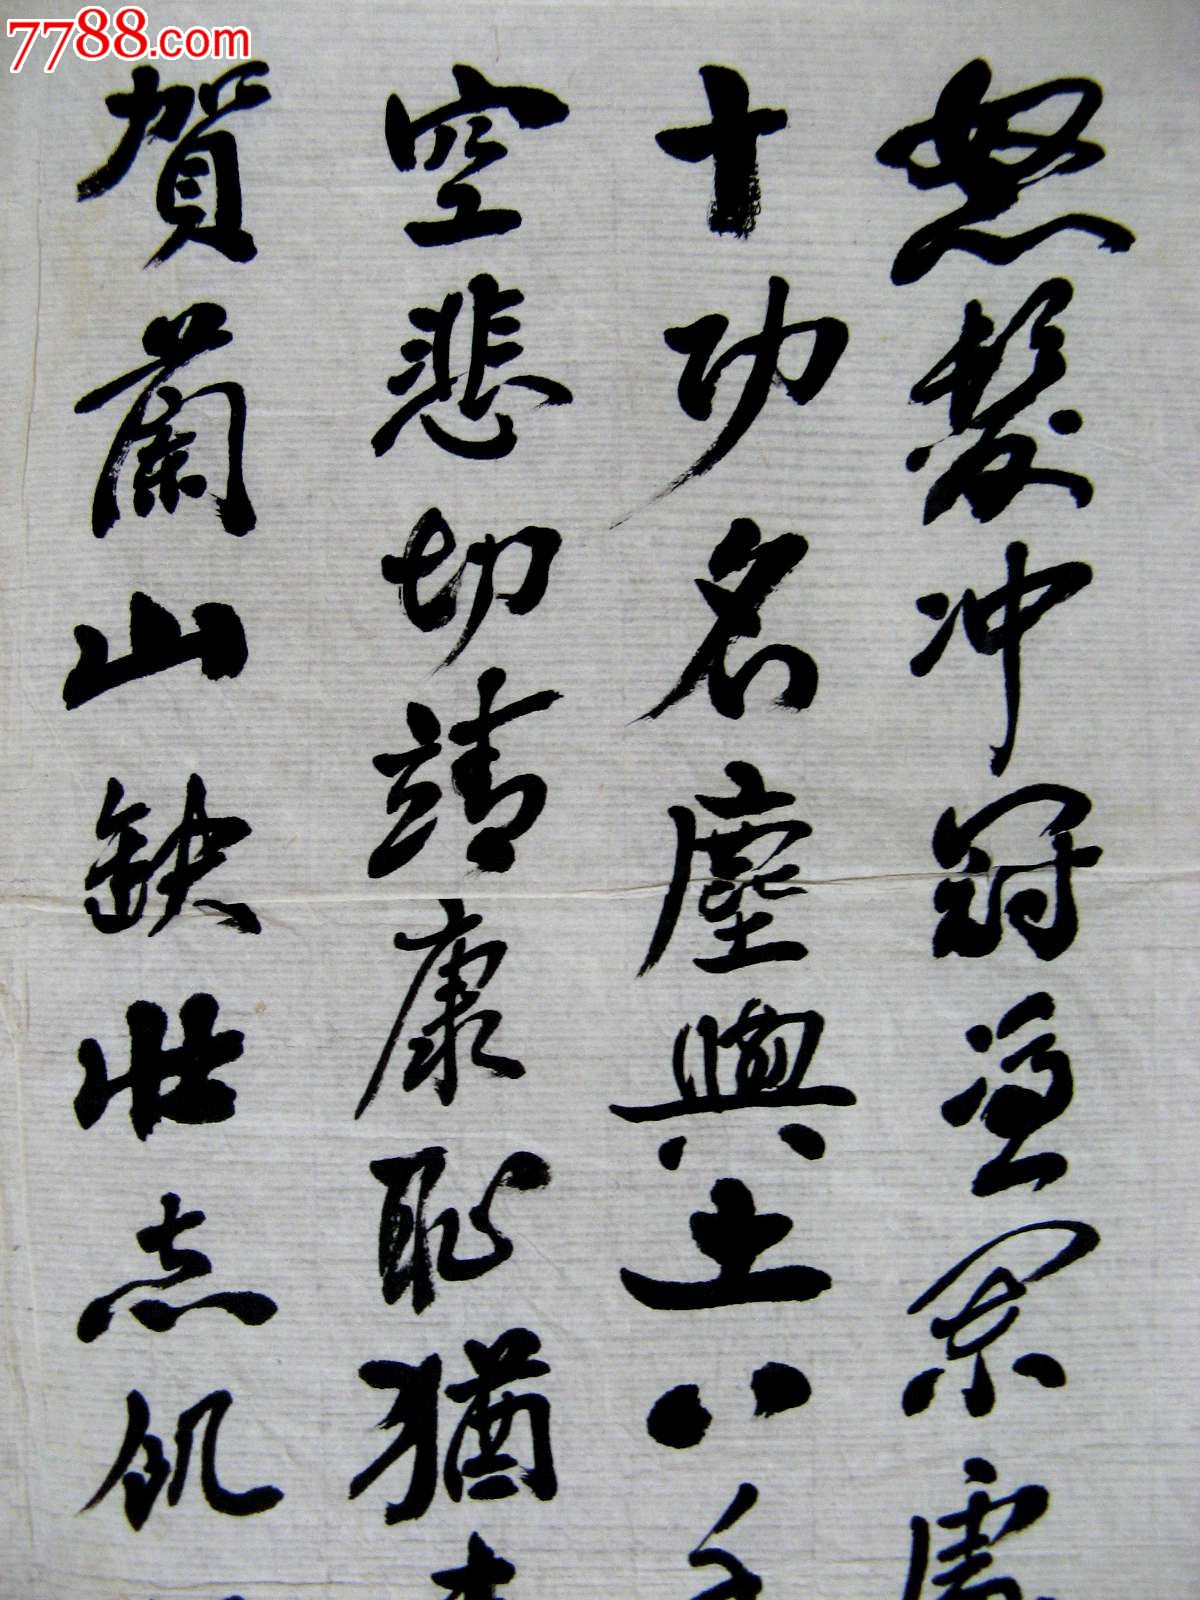 7788.com
怒髮冲冠凭闌處
十功名塵與土八千
空悲切靖康恥猶未
賀蘭山缺壯志飢